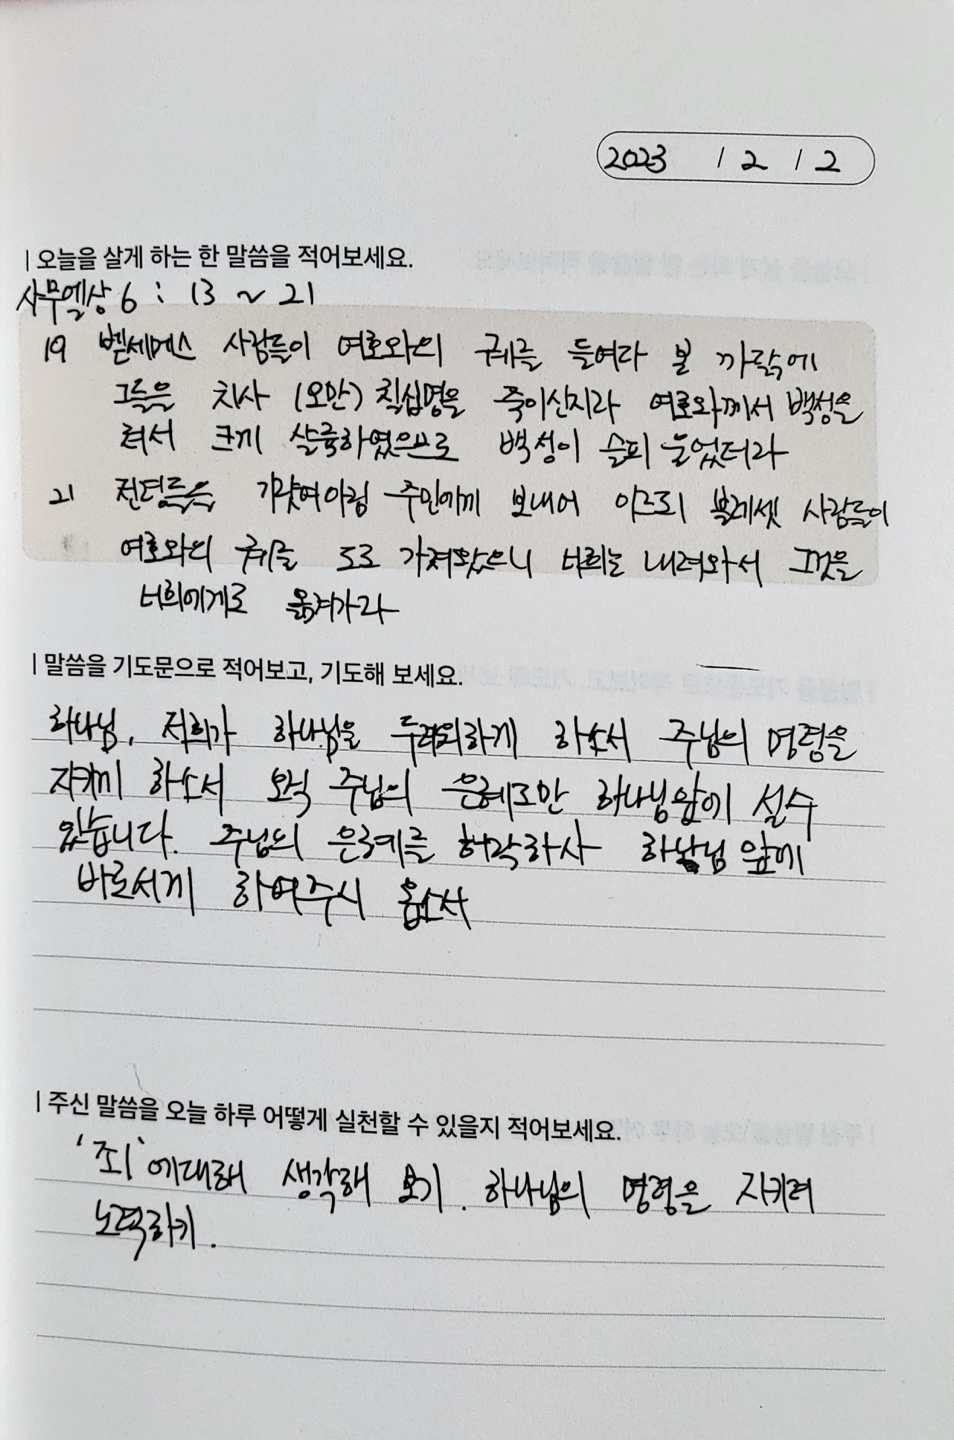 2023 / 2 / 2
| 오늘을 살게 하는 한 말씀을 적어보세요.
사무엘상 6 : 13 ~ 21
19 벧세메스 사람들이 여호와의 궤를 들여다 본 까닭에
그들을 치사 (오만) 칠십명을 죽이신지라 여호와께서 백성을
쳐서 크게 살륙하였으므로 백성이 슬피 울었더라
21 전령들을 기럇여아림 주민에게 보내어 이르되 블레셋 사람들이
여호와의 궤를 도로 가져왔으니 너희는 내려와서 그것을
너희에게로 옮겨가라
| 말씀을 기도문으로 적어보고, 기도해 보세요.
하나님, 저희가 하나님을 두려워하게 하소서 주님의 명령을
지키게 하소서 오직 주님의 은혜로만 하나님앞에 설수
있습니다. 주님의 은혜를 허락하사 하나님 앞에
바로서게 하여주시 옵소서
| 주신 말씀을 오늘 하루 어떻게 실천할 수 있을지 적어보세요.
'죄'에대해 생각해 보기. 하나님의 명령을 지키려
노력하기.